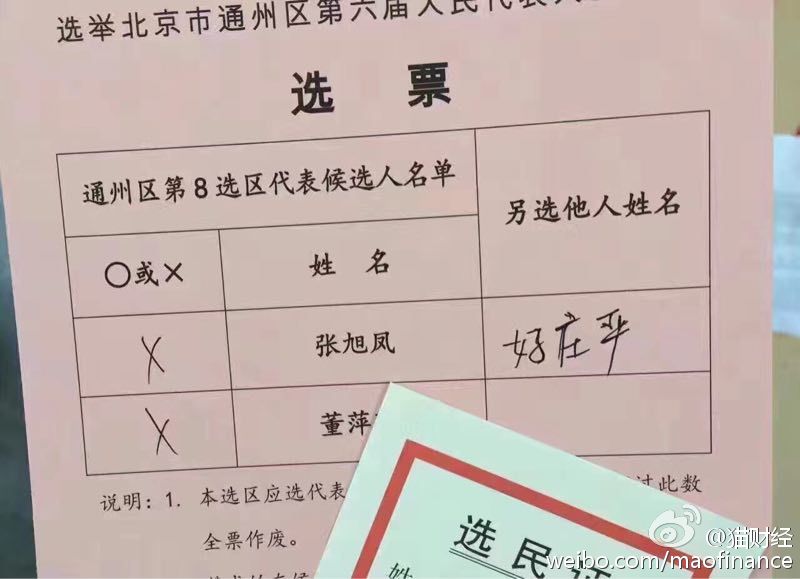 选举北京市通州区第六届人民代表大
选 票
通州区第8选区代表候选人名单
另选他人姓名
○或×
姓 名
×
张旭凤
好庄平
×
董萍
说明：1. 本选区应选代表
过此数
全票作废。
选民证
姓
@猫财经
weibo.com/maofinance